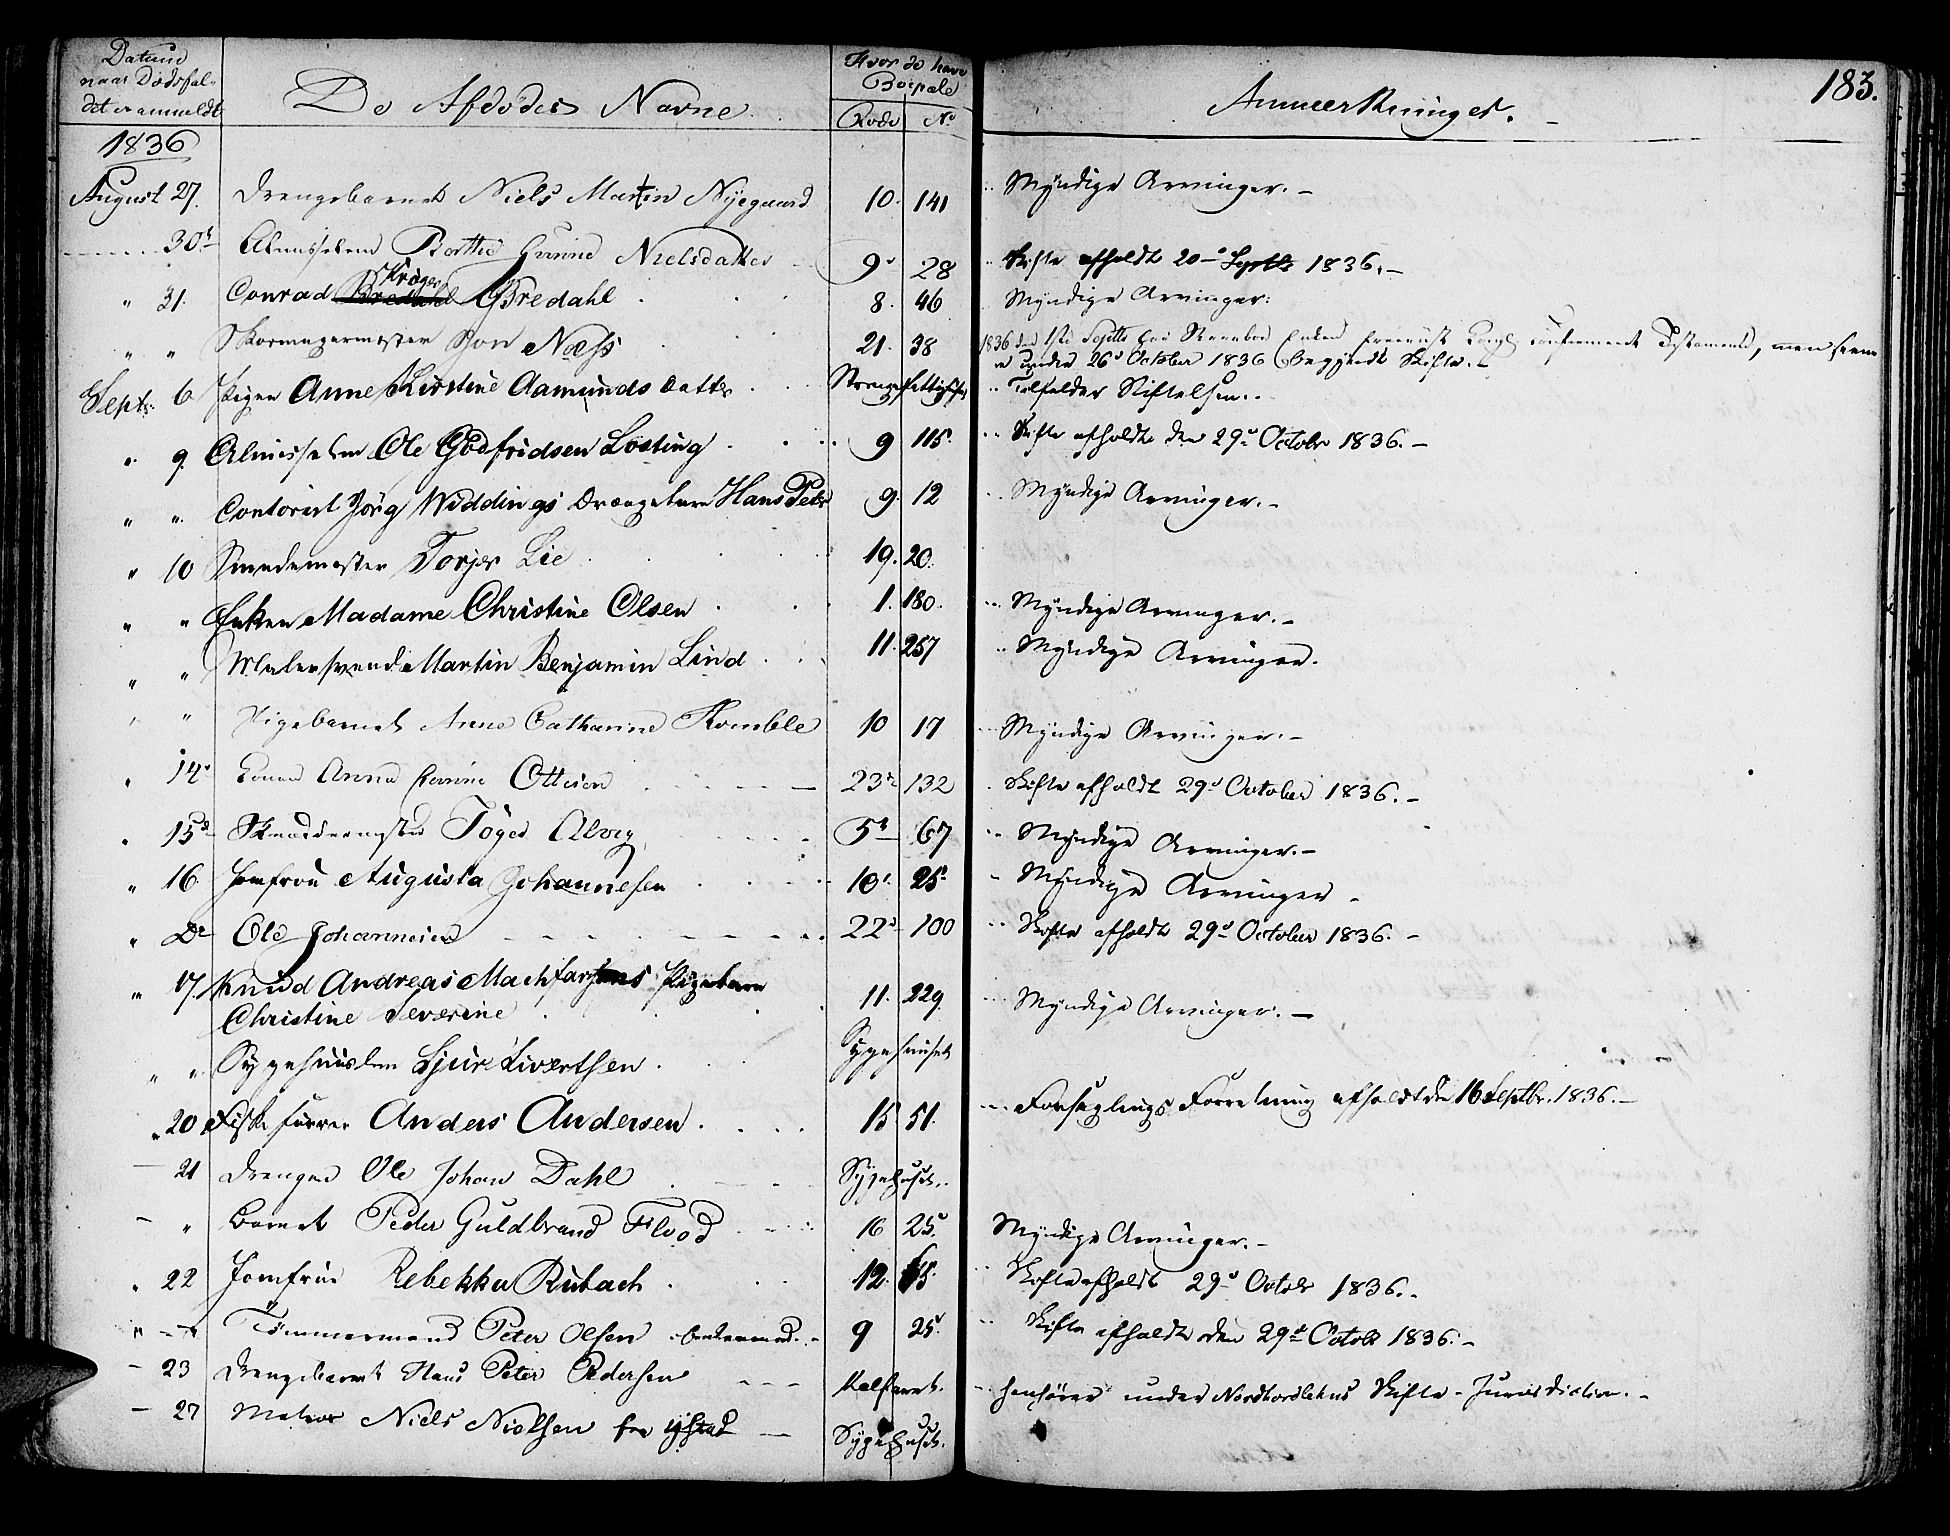 Datum
naar Dødsfal-
det er anmeldt
De Afdødes Navne
Hvor de have
Boepæle
Rode No
Anmerkninger.
183.
1836
August 27. Drengebarnet Niels Martin Nyegaard 10. 141 Myndige Arvinger.
30t Almisselem Berthe Nielsdatter 9 28 Skifte afholdt 20 Septb 1836.
" 31. Conrad Krøger Bredahl 8. 46 Myndige Arvinger:
" " Skoemagermester Jon Næss 21. 38 1836 den Septb Enken Testamente, men
under 26 October 1836 begyndt Skifte.
Septr 6. Pigen Anne Kirstine Aamunds Datter Tilfalder Stiftelsen.
" 9. Almisselem Ole Godfridsen Losting 9 115. Skifte afholdt den 29 Octobr 1836.
" " Contorist Jørg Widdings Drængebarn Hans Peter 9. 12 Myndige Arvinger.
" 10 Smedemester Torjer Lie 19. 20.
" " Enken Madame Christine Olsen 1. 180. Myndige Arvinger.
" " Malersvend Martin Benjamin Lind 11. 257 Myndige Arvinger.
" " Pigebarnet Anne Catharine Komble 10 17 Myndige Arvinger.
" 14 Konen Anna Ottesen 23 132 Skifte afholdt 29 October 1836.
" 15 Skreddermester Tøger Alvig 5 67 Myndige Arvinger.
" 16. Jomfrou Augusta Johannesen 10. 25. Myndige Arvinger
" Do Ole Johannesen 22 100 Skifte afholdt 29 October 1836.
" 17. Knud Andreas Pigebarn
Christine Severine 11. 229. Myndige Arvinger.
" " Sygehuuslem Sjur Sivertsen Sygehuuset
" 20 Fiskefører Anders Andersen 15 51. Forseglings Forretning afholdt den 16 Septbr. 1836.
21 Drengen Ole Johan Dahl Sygehuset.
" Barnet Peder Guldbrand Flood 16 25. Myndige Arvinger.
" 22 Jomfrue Rebekka Rubach 12. 65. Skifte afholdt 29 Octob 1836.
" " Tømmermand Peter Olsen 9 25. Skifte afholdt den 29 Octob 1836.
23 Drengebarnet Hans Peter Pedersen Kalfaret. henhører under Nordhordlehns Skifte-Jurisdiction.
27 Matros Niels Nielsen fra Ystad Sygehuset.